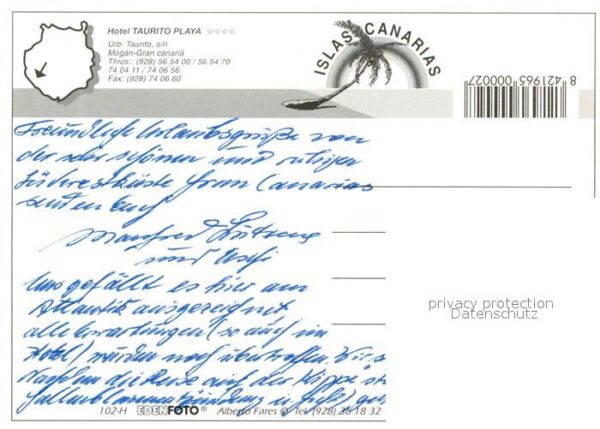 Hotel TAURITO PLAYA ☆☆☆☆
Urb. Taurito, s/n
Mogán-Gran canaria
Tfnos.: (928) 56 54 00 / 56 54 70
74 04 11 / 74 06 56
Fax: (928) 74 06 60
ISLAS CANARIAS
8 421965 000027
Freundliche Urlaubsgrüße von
der sehr schönen und ruhigen
Südwestküste Gran Canarias
senden Euch
Manfred
und Uschi
Uns gefällt es hier am
Atlantik ausgezeichnet
alle Erwartungen (so auch im
Hotel) wurden noch übertroffen. Wir s
Nachdem die Reise auf der Kippe st
privacy protection
Datenschutz
102-H EDENFOTO® Alberto Fares © Tel. (928) 36 18 32